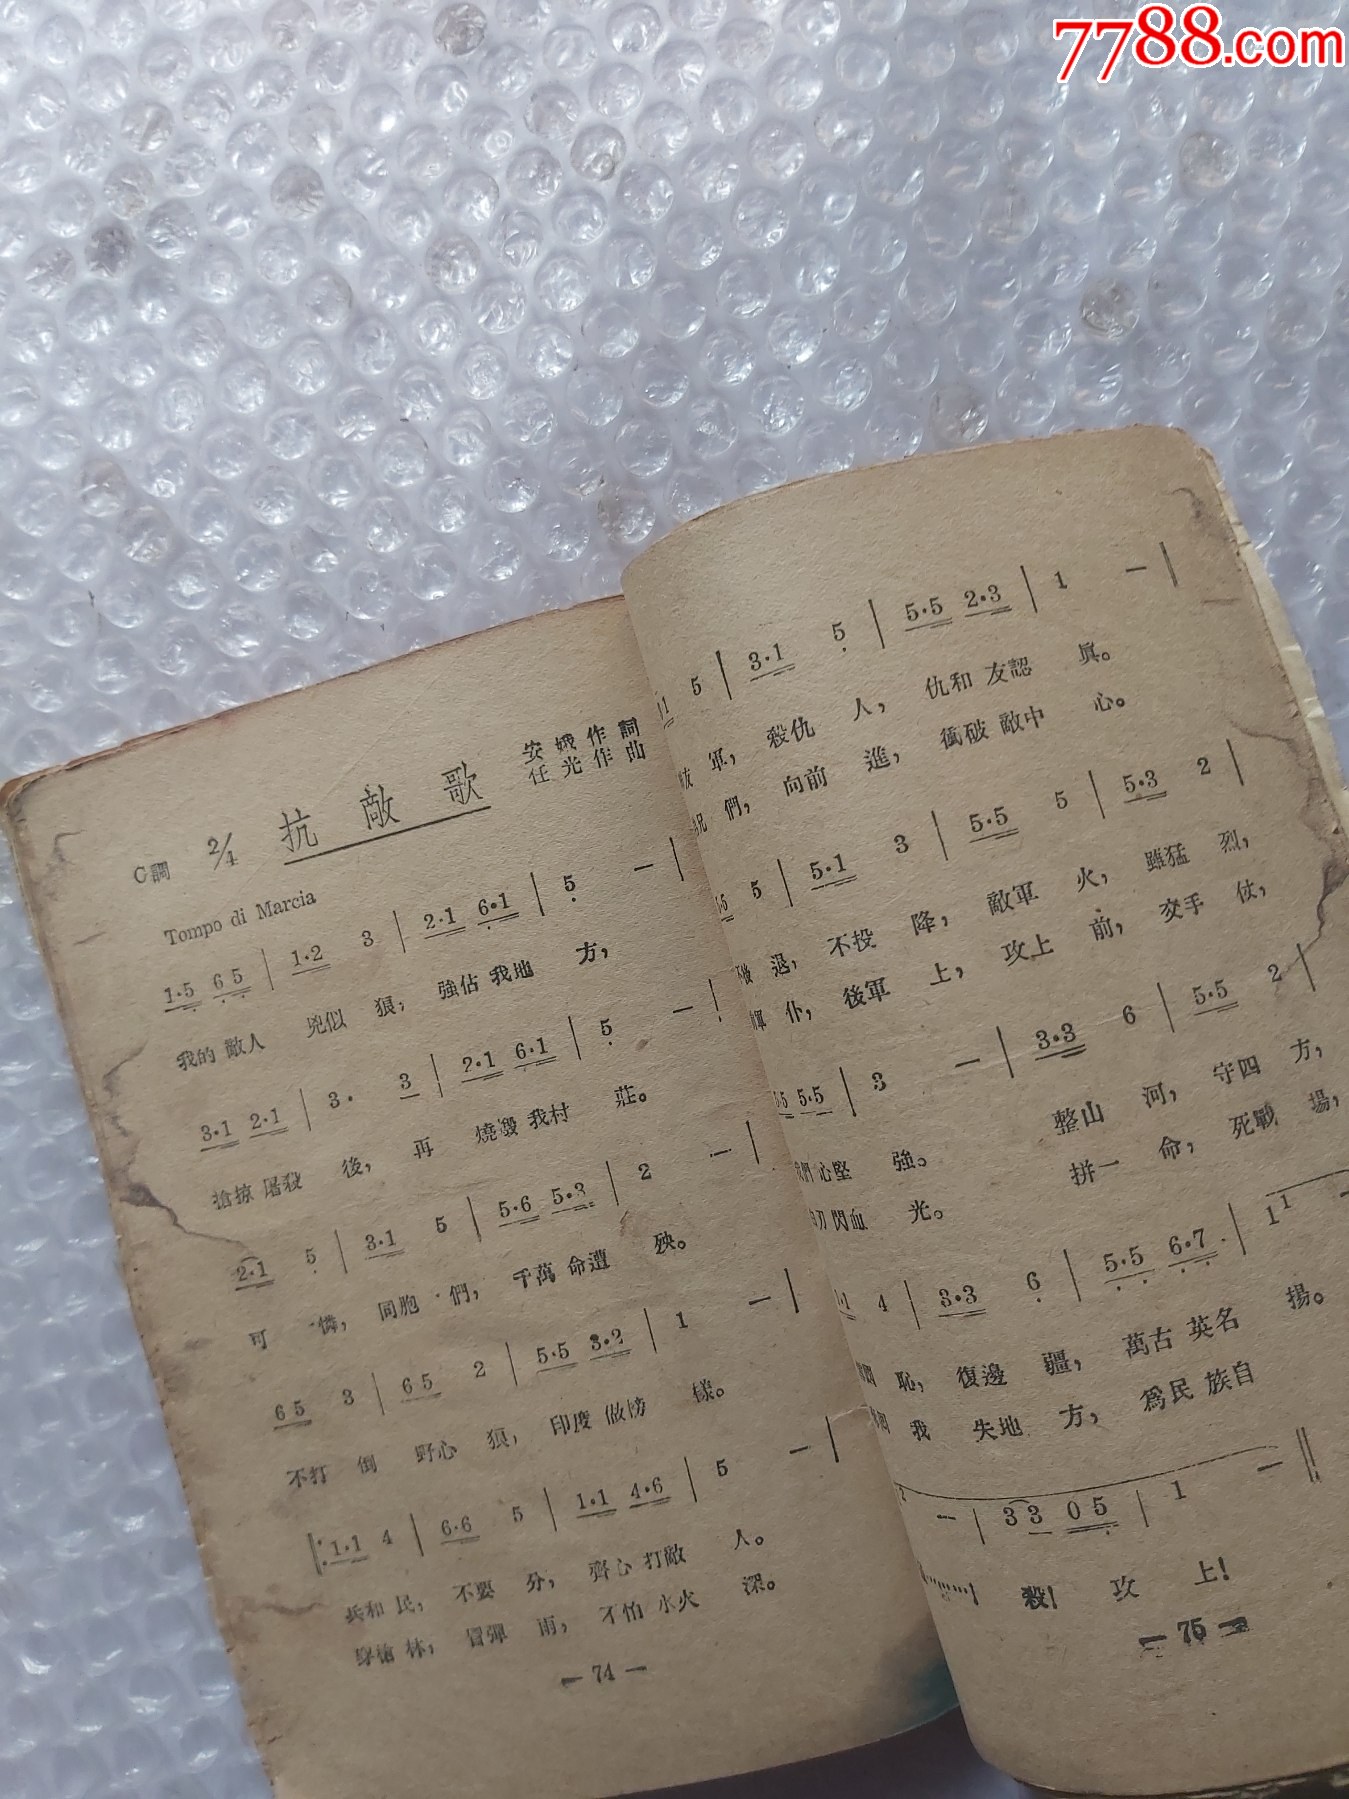 7788.com
抗敵歌
安娥作詞
任光作曲
C調 2/4
Tompo di Marcia
1·5 6 5 | 1·2 3 | 2·1 6·1 | 5 — |
我的 敵人 兇似 狼, 強佔 我地 方,
3·1 2·1 | 3· 3 | 2·1 6·1 | 5 — |
搶掠 屠殺 後, 再 燒燬 我村 莊。
2·1 5 | 3·1 5 | 5·6 5·3 | 2 — |
可 憐, 同胞 們, 千萬 命遭 殃。
6 5 3 | 6 5 2 | 5·5 3·2 | 1 — |
不打 倒 野心 狼, 印度 做榜 樣。
|: 1·1 4 | 6·6 5 | 1·1 4·6 | 5 — |
兵和 民, 不要 分, 齊心 打敵 人。
穿槍 林, 冒彈 雨, 不怕 水火 深。
— 74 —
5 | 3·1 5 | 5·5 2·3 | 1 — |
軍, 殺仇 人, 仇和 友認 眞。
們, 向前 進, 衝破 敵中 心。
5 | 5·1 3 | 5·5 5 | 5·3 2 |
退, 不投 降, 敵軍 火, 雖猛 烈,
仆, 後軍 上, 攻上 前, 交手 仗,
5·5 | 3 — | 3·3 6 | 5·5 2 |
心堅 強。 整山 河, 守四 方,
刀 閃血 光。 拼一 命, 死戰 場,
4 | 3·3 6 | 5·5 6·7 | 1 1 —
恥, 復邊 疆, 萬古 英名 揚。
我 失地 方, 爲民 族自
2 — | 3 3 0 5 | 1 — ||
殺! 攻 上!
— 75 —